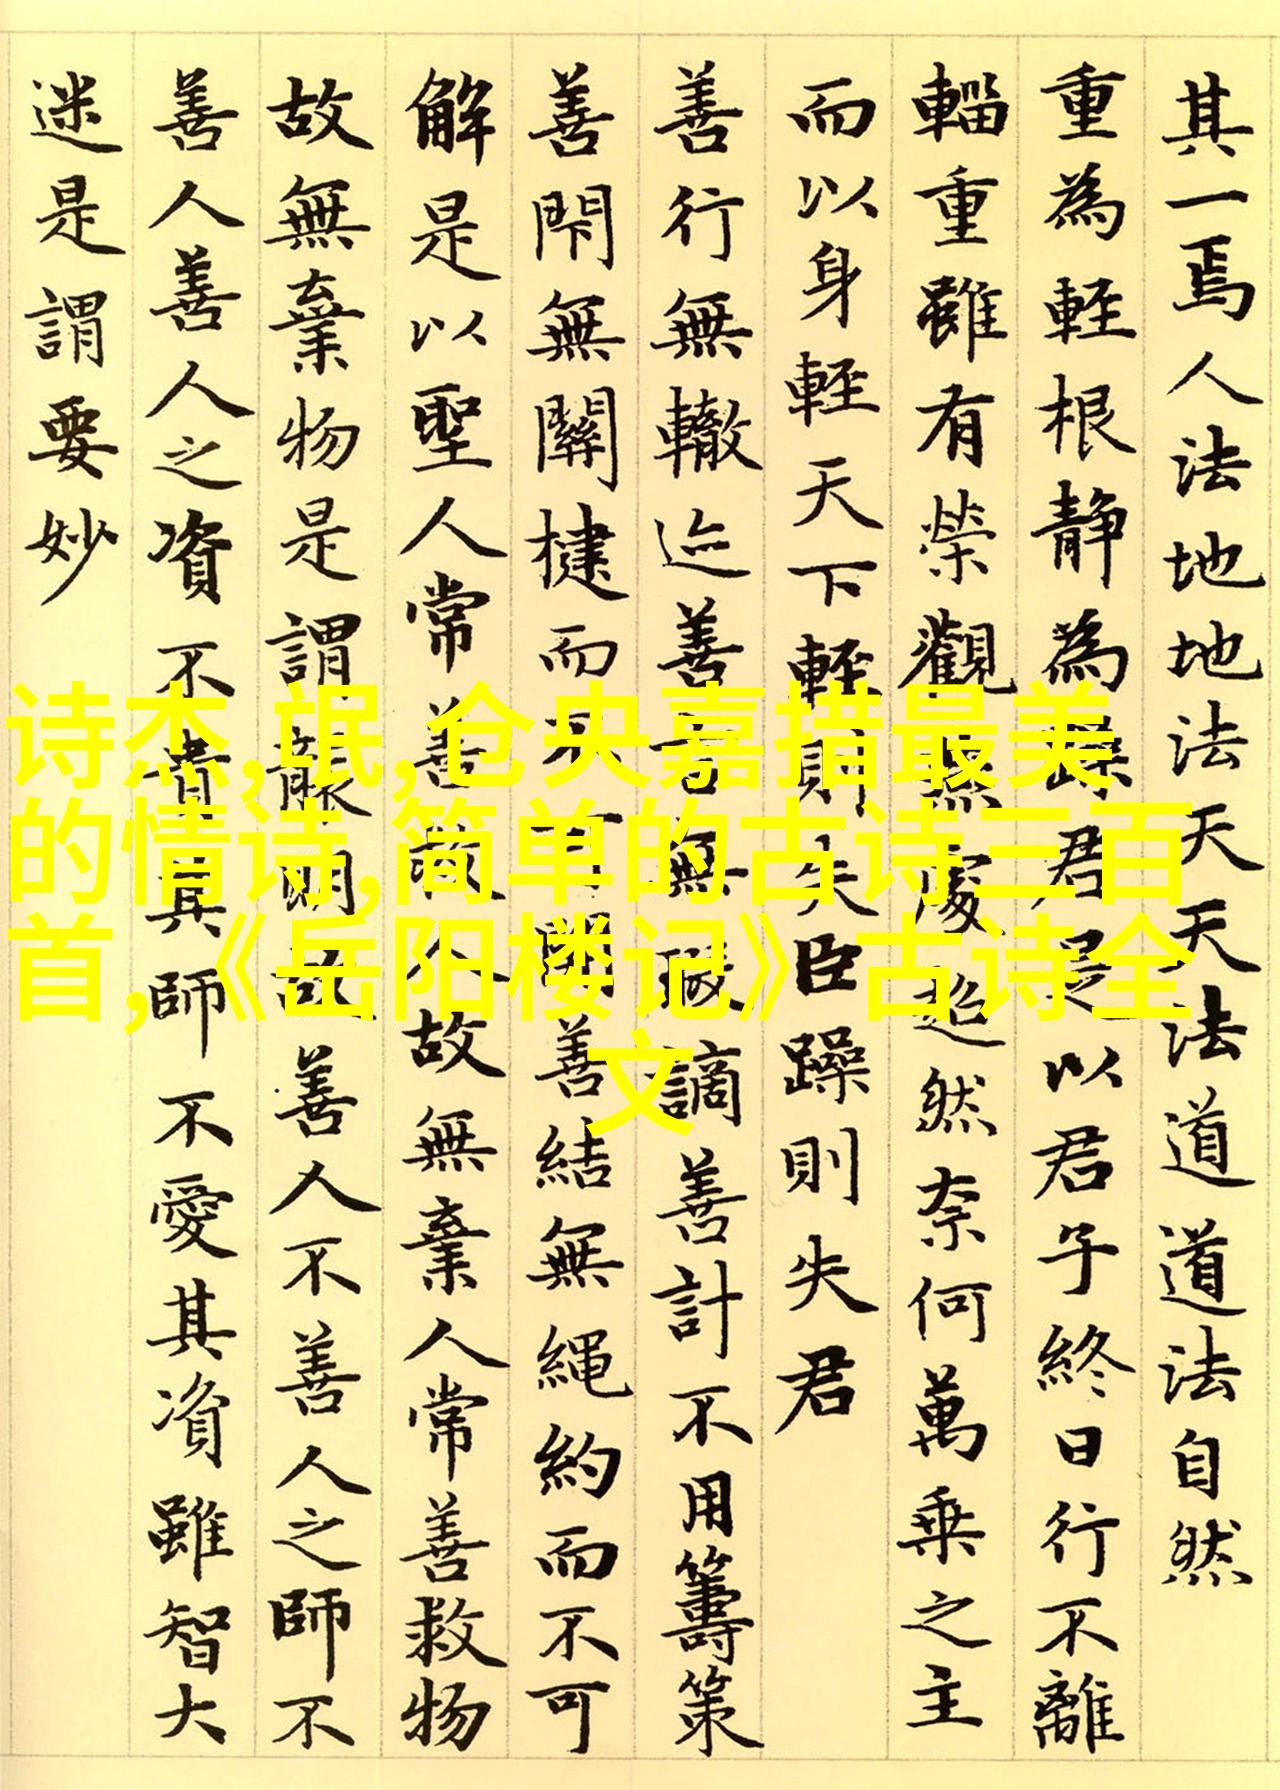 其一焉人法地地法天天法道道法自然
重為輕根静為躁君是以君子終日行不離
輜重雖有榮觀燕處超然奈何萬乘之主
而以身輕天下輕則失臣躁則失君
善行無轍迹善言無瑕謫善計不用籌策
善閇無關揵而不可開善結無繩約而不可
解是以聖人常善救人故無棄人常善救物
故無棄物是謂襲明故善人不善人之師不
善人善人之資不貴其師不愛其資雖智大
迷是謂要妙
诗杰,氓,仓央嘉措最美
的情诗,简单的古诗三百
首,《岳阳楼记》古诗全
文